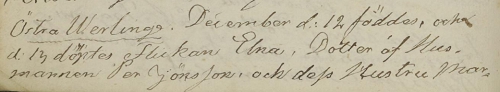 Östra Werlinge. December d: 12 föddes, och
d: 13 döptes Flickan Elna, Dotter af Hus-
mannen Per Jönsson, och dess Hustru Mar-